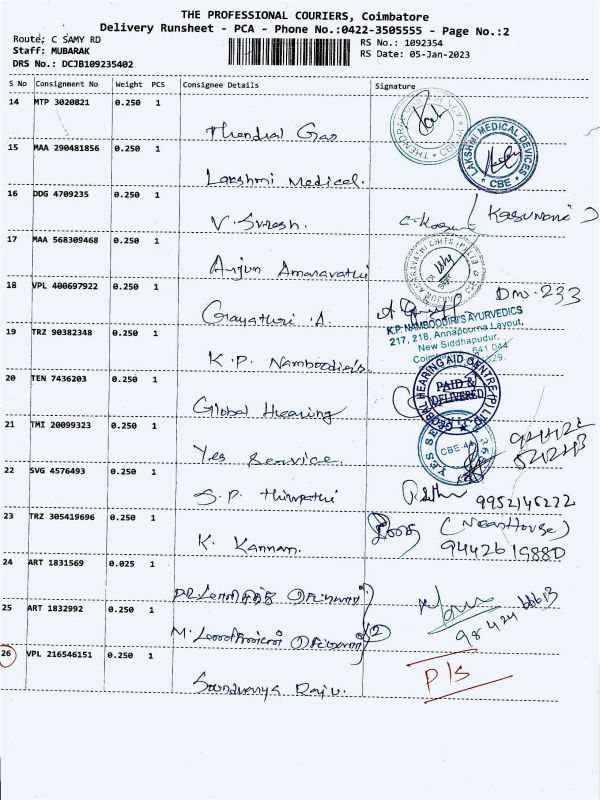 THE PROFESSIONAL COURIERS, Coimbatore
Delivery Runsheet - PCA - Phone No.:0422-3505555 - Page No.:2
Route: C SAMY RD
Staff: MUBARAK
DRS No.: DCJB109235402
RS No.: 1092354
RS Date: 05-Jan-2023
S No Consignment No Weight PCS Consignee Details Signature
14 MTP 3020821 0.250 1
Thendral Gas
15 MAA 290481856 0.250 1
LAKSHMI MEDICAL DEVICES
CBE
Lakshmi Medical.
16 DDG 4709235 0.250 1
V. Suresh.
17 MAA 568309468 0.250 1
Anjun Amaravathi
18 VPL 400697922 0.250 1
Gayathri .A
19 TRZ 90382348 0.250 1
K.P. NAMBOODIRI'S AYURVEDICS
217, 218, Annapoorna Layout,
New Siddhapudur,
K.P. Namboodiri's
20 TEN 7436203 0.250 1
GLOBAL HEARING AID CENTRE (P) LTD
PAID & DELIVERED
Global Hearing
21 TMI 20099323 0.250 1
Yes Service.
22 SVG 4576493 0.250 1
S.P. Thirupathi
9952145222
23 TRZ 305419696 0.250 1
K. Kannan.
(Near House)
24 ART 1831569 0.025 1
25 ART 1832992 0.250 1
2
26 VPL 216546151 0.250 1
P/s
Soundvanya Raju.